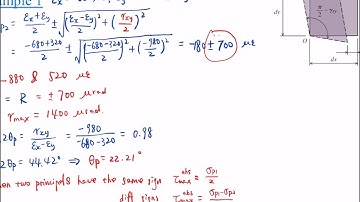 mple 1
P2 = (εx + εy)/2 ± √((εx − εy)/2)² + (γxy/2)²
= (−680+320)/2 ± √((−680−320)/2)² + (−980/2)² = −180 ± 700 με
−880 & 520 με
= R = ± 700 μrad
γmax = 1400 μrad.
2θp = γxy/(εx − εy) = −980/(−680−320) = 0.98
2θp = 44.42° ⇒ θp = 22.21°
en two principals have the same sign τmax^abs = σp1/2
diff signs τmax^abs = (σp1 − σp2)
dy
π/2
O
dx